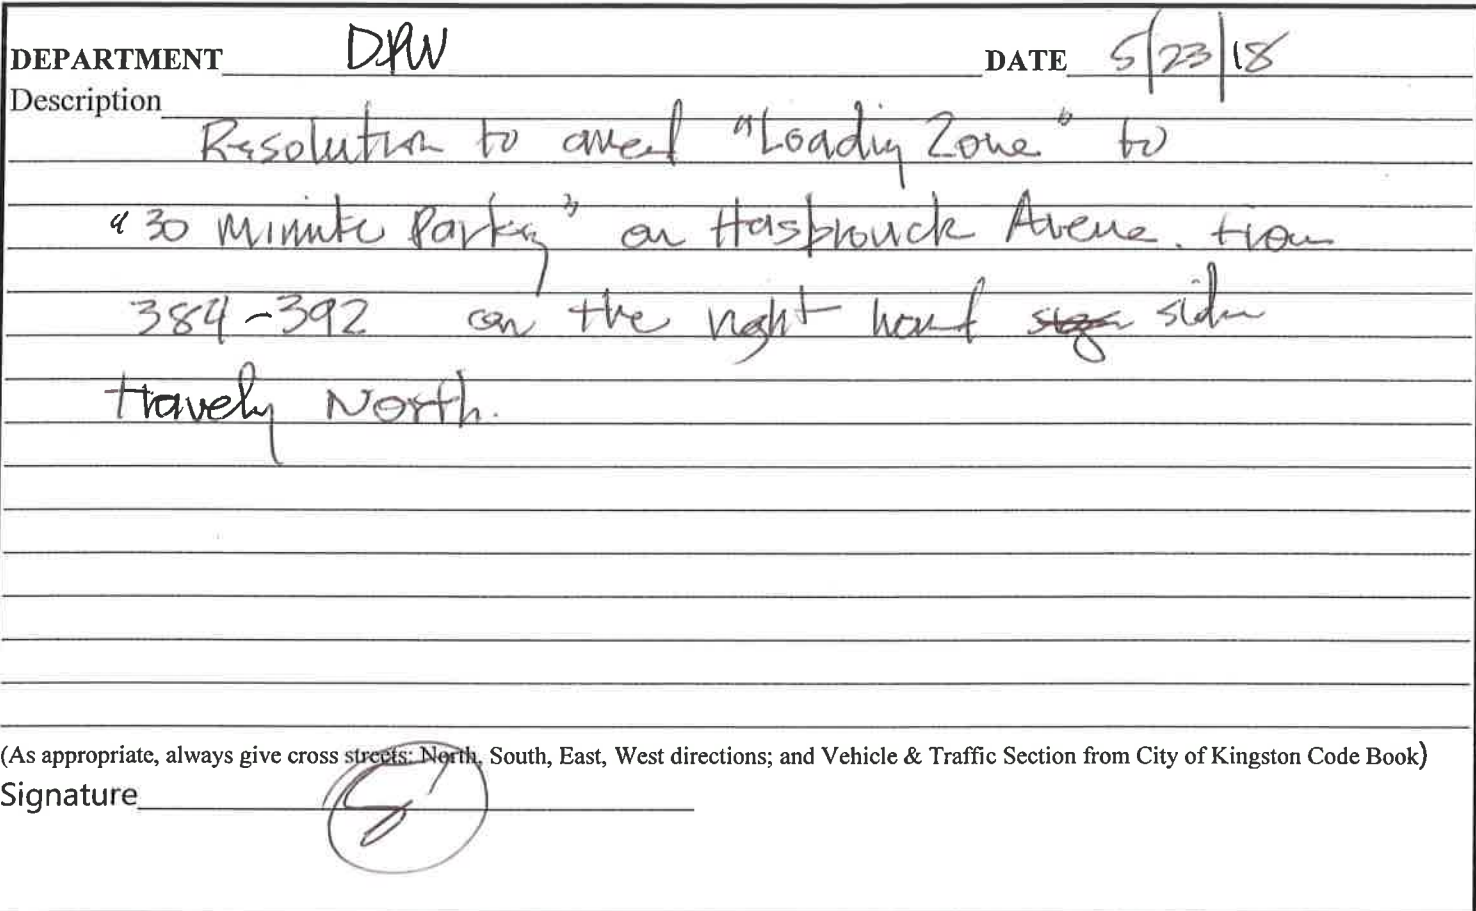 DEPARTMENT DPW DATE 5/23/18
Description
Resolution to amend "Loading Zone" to
"30 Minute Parking" on Hasbrouck Avenue. from
384-392 on the right hand side
traveling North.
(As appropriate, always give cross streets: North, South, East, West directions; and Vehicle & Traffic Section from City of Kingston Code Book)
Signature